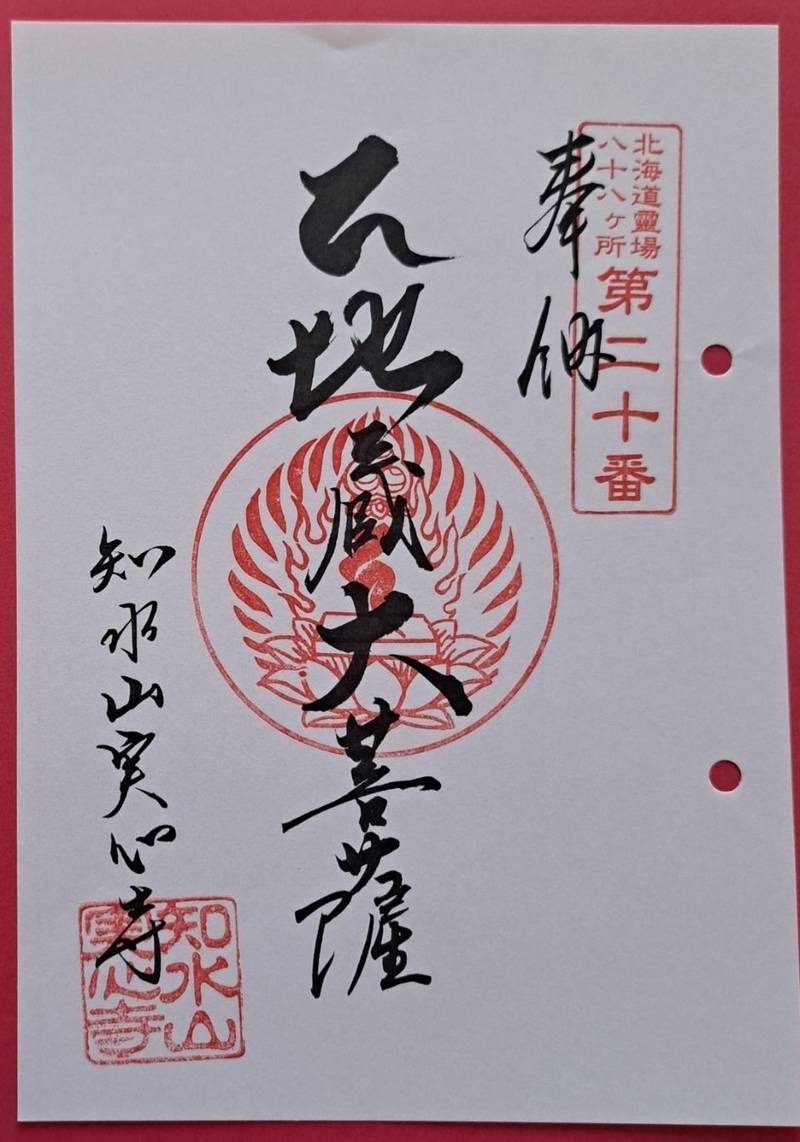 北海道霊場
八十八ヶ所
第二十番
奉納
地蔵大菩薩
知水山実心寺
知水山
實心寺